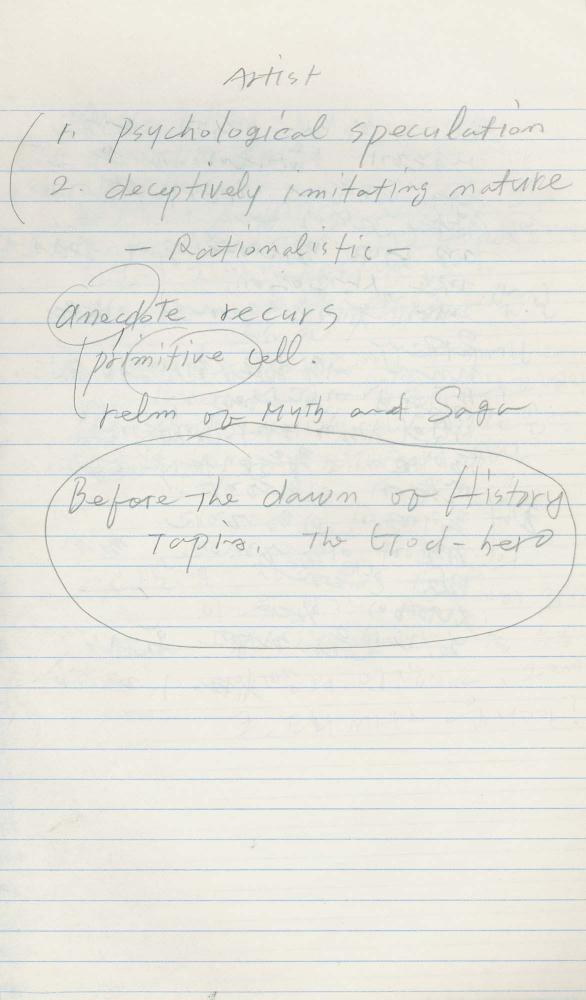 Artist
1. Psychological speculation
2. deceptively imitating nature
— Rationalistic —
anecdote recurs
primitive cell.
relm of Myth and Saga
Before the dawn of History
The God-hero